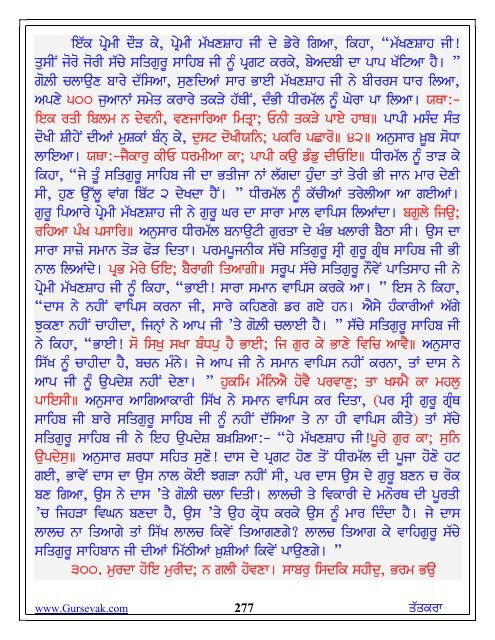 ਇੱਕ ਪ੍ਰੇਮੀ ਦੌੜ ਕੇ, ਪ੍ਰੇਮੀ ਮੱਖਣਸ਼ਾਹ ਜੀ ਦੇ ਡੇਰੇ ਗਿਆ, ਕਿਹਾ, “ਮੱਖਣਸ਼ਾਹ ਜੀ!
ਤੁਸੀਂ ਜੋਰੋ ਜੋਰੀ ਸੱਚੇ ਸਤਿਗੁਰੂ ਸਾਹਿਬ ਜੀ ਨੂੰ ਪ੍ਰਗਟ ਕਰਕੇ, ਬੇਅਦਬੀ ਦਾ ਪਾਪ ਖੱਟਿਆ ਹੈ। ”
ਗੋਲ਼ੀ ਚਲਾਉਣ ਬਾਰੇ ਦੱਸਿਆ, ਸੁਣਦਿਆਂ ਸਾਰ ਭਾਈ ਮੱਖਣਸ਼ਾਹ ਜੀ ਨੇ ਬੀਰਰਸ ਧਾਰ ਲਿਆ,
ਅਪਣੇ ੫੦੦ ਜੁਆਨਾਂ ਸਮੇਤ ਕਰਾਰੇ ਤਕੜੇ ਹੱਥੀਂ, ਦੰਭੀ ਧੀਰਮੱਲ ਨੂੰ ਘੇਰਾ ਪਾ ਲਿਆ। ਯਥਾ:-
ਇਕ ਰਤੀ ਬਿਲਮ ਨ ਦੇਵਨੀ, ਵਣਜਾਰਿਆ ਮਿਤ੍ਰਾ; ਓਨੀ ਤਕੜੇ ਪਾਏ ਹਾਥ॥ ਪਾਪੀ ਮਸੰਦ ਸੰਤ
ਦੋਖੀ ਸ਼ੀਹੇਂ ਦੀਆਂ ਮੁਸ਼ਕਾਂ ਬੰਨ੍ ਕੇ, ਦੁਸਟ ਦੋਖੀਯਨਿ; ਪਕਰਿ ਪਛਾਰੋ॥ ੪੨॥ ਅਨੁਸਾਰ ਖ਼ੂਬ ਸੋਧਾ
ਲਾਇਆ। ਯਥਾ:-ਜੈਕਾਰੁ ਕੀਓ ਧਰਮੀਆ ਕਾ; ਪਾਪੀ ਕਉ ਡੰਡੁ ਦੀਓਇ॥ ਧੀਰਮੱਲ ਨੂੰ ਤਾੜ ਕੇ
ਕਿਹਾ, “ਜੇ ਤੂੰ ਸਤਿਗੁਰੂ ਸਾਹਿਬ ਜੀ ਦਾ ਭਤੀਜਾ ਨਾਂ ਲੱਗਦਾ ਹੁੰਦਾ ਤਾਂ ਤੇਰੀ ਭੀ ਜਾਨ ਮਾਰ ਦੇਣੀ
ਸੀ, ਹੁਣ ਉੱਲੂ ਵਾਂਗ ਬਿੱਟ ੨ ਦੇਖਦਾ ਹੈਂ। ” ਧੀਰਮੱਲ ਨੂੰ ਕੱਚੀਆਂ ਤਰੇਲੀਆ ਆ ਗਈਆਂ।
ਗੁਰੂ ਪਿਆਰੇ ਪ੍ਰੇਮੀ ਮੱਖਣਸ਼ਾਹ ਜੀ ਨੇ ਗੁਰੂ ਘਰ ਦਾ ਸਾਰਾ ਮਾਲ ਵਾਪਿਸ ਲਿਆਂਦਾ। ਬਗੁਲੇ ਜਿਉ;
ਰਹਿਆ ਪੰਖ ਪਸਾਰਿ॥ ਅਨੁਸਾਰ ਧੀਰਮੱਲ ਬਨਾਉਟੀ ਗੁਰਤਾ ਦੇ ਖੰਭ ਖਲਾਰੀ ਬੈਠਾ ਸੀ। ਉਸ ਦਾ
ਸਾਰਾ ਸਾਜ਼ੋ ਸਮਾਨ ਤੋੜ ਫੋੜ ਦਿਤਾ। ਪਰਮਪੂਜਨੀਕ ਸੱਚੇ ਸਤਿਗੁਰੂ ਸ੍ਰੀ ਗੁਰੂ ਗ੍ਰੰਥ ਸਾਹਿਬ ਜੀ ਭੀ
ਨਾਲ ਲਿਆਂਦੇ। ਪ੍ਰਭ ਮੇਰੇ ਓਇ; ਬੈਰਾਗੀ ਤਿਆਗੀ॥ ਸਰੂਪ ਸੱਚੇ ਸਤਿਗੁਰੂ ਨੌਵੇਂ ਪਾਤਿਸਾਹ ਜੀ ਨੇ
ਪ੍ਰੇਮੀ ਮੱਖਣਸ਼ਾਹ ਜੀ ਨੂੰ ਕਿਹਾ, “ਭਾਈ! ਸਾਰਾ ਸਮਾਨ ਵਾਪਿਸ ਕਰਕੇ ਆ। ” ਇਸ ਨੇ ਕਿਹਾ,
“ਦਾਸ ਨੇ ਨਹੀਂ ਵਾਪਿਸ ਕਰਨਾ ਜੀ, ਸਾਰੇ ਕਹਿਣਗੇ ਡਰ ਗਏ ਹਨ। ਐਸੇ ਹੰਕਾਰੀਆਂ ਅੱਗੇ
ਝੁਕਣਾ ਨਹੀਂ ਚਾਹੀਦਾ, ਜਿਨ੍ਹਾਂ ਨੇ ਆਪ ਜੀ ’ਤੇ ਗੋਲ਼ੀ ਚਲਾਈ ਹੈ। ” ਸੱਚੇ ਸਤਿਗੁਰੂ ਸਾਹਿਬ ਜੀ
ਨੇ ਕਿਹਾ, “ਭਾਈ! ਸੋ ਸਿਖੁ ਸਖਾ ਬੰਧਪੁ ਹੈ ਭਾਈ; ਜਿ ਗੁਰ ਕੇ ਭਾਣੇ ਵਿਚਿ ਆਵੈ॥ ਅਨੁਸਾਰ
ਸਿੱਖ ਨੂੰ ਚਾਹੀਦਾ ਹੈ, ਬਚਨ ਮੰਨੇ। ਜੇ ਆਪ ਜੀ ਨੇ ਸਮਾਨ ਵਾਪਿਸ ਨਹੀਂ ਕਰਨਾ, ਤਾਂ ਦਾਸ ਨੇ
ਆਪ ਜੀ ਨੂੰ ਉਪਦੇਸ਼ ਨਹੀਂ ਦੇਣਾ। ” ਹੁਕਮਿ ਮੰਨਿਐ ਹੋਵੈ ਪਰਵਾਣੁ; ਤਾ ਖਸਮੈ ਕਾ ਮਹਲੁ
ਪਾਇਸੀ॥ ਅਨੁਸਾਰ ਆਗਿਆਕਾਰੀ ਸਿੱਖ ਨੇ ਸਮਾਨ ਵਾਪਸ ਕਰ ਦਿਤਾ, (ਪਰ ਸ੍ਰੀ ਗੁਰੂ ਗ੍ਰੰਥ
ਸਾਹਿਬ ਜੀ ਬਾਰੇ ਸਤਿਗੁਰੂ ਸਾਹਿਬ ਜੀ ਨੂੰ ਨਹੀਂ ਦੱਸਿਆ ਤੇ ਨਾ ਹੀ ਵਾਪਿਸ ਕੀਤੇ) ਤਾਂ ਸੱਚੇ
ਸਤਿਗੁਰੂ ਸਾਹਿਬ ਜੀ ਨੇ ਇਹ ਉਪਦੇਸ਼ ਬਖ਼ਸ਼ਿਆ:- “ਹੇ ਮੱਖਣਸ਼ਾਹ ਜੀ!ਪੂਰੇ ਗੁਰ ਕਾ; ਸੁਨਿ
ਉਪਦੇਸੁ॥ ਅਨੁਸਾਰ ਸ਼ਰਧਾ ਸਹਿਤ ਸੁਣੋ! ਦਾਸ ਦੇ ਪ੍ਰਗਟ ਹੋਣ ਤੋਂ ਧੀਰਮੱਲ ਦੀ ਪੂਜਾ ਹੋਣੋ ਹਟ
ਗਈ, ਭਾਵੇਂ ਦਾਸ ਦਾ ਉਸ ਨਾਲ ਕੋਈ ਝਗੜਾ ਨਹੀਂ ਸੀ, ਪਰ ਦਾਸ ਉਸ ਦੇ ਗੁਰੂ ਬਣਨ ਚ ਰੋਕ
ਬਣ ਗਿਆ, ਉਸ ਨੇ ਦਾਸ ’ਤੇ ਗੋਲ਼ੀ ਚਲਾ ਦਿਤੀ। ਲਾਲਚੀ ਤੇ ਵਿਕਾਰੀ ਦੇ ਮਨੋਰਥ ਦੀ ਪੂਰਤੀ
’ਚ ਜਿਹੜਾ ਵਿਘਨ ਬਣਦਾ ਹੈ, ਉਸ ’ਤੇ ਉਹ ਕ੍ਰੋਧ ਕਰਕੇ ਉਸ ਨੂੰ ਮਾਰ ਦਿੰਦਾ ਹੈ। ਜੇ ਦਾਸ
ਲਾਲਚ ਨਾ ਤਿਆਗੇ ਤਾਂ ਸਿੱਖ ਲਾਲਚ ਕਿਵੇਂ ਤਿਆਗਣਗੇ? ਲਾਲਚ ਤਿਆਗ ਕੇ ਵਾਹਿਗੁਰੂ ਸੱਚੇ
ਸਤਿਗੁਰੂ ਸਾਹਿਬਾਨ ਜੀ ਦੀਆਂ ਮਿੱਠੀਆਂ ਖ਼ੁਸ਼ੀਆਂ ਕਿਵੇਂ ਪਾਉਣਗੇ। ”
੩੦੦. ਮੁਰਦਾ ਹੋਇ ਮੁਰੀਦ; ਨ ਗਲੀ ਹੋਵਣਾ। ਸਾਬਰੁ ਸਿਦਕਿ ਸਹੀਦੁ, ਭਰਮ ਭਉ
www.Gursevak.com 277 ਤੱਤਕਰਾ